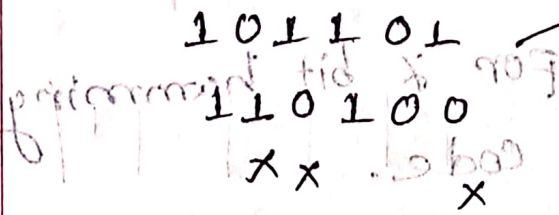 101101
110100
x x x